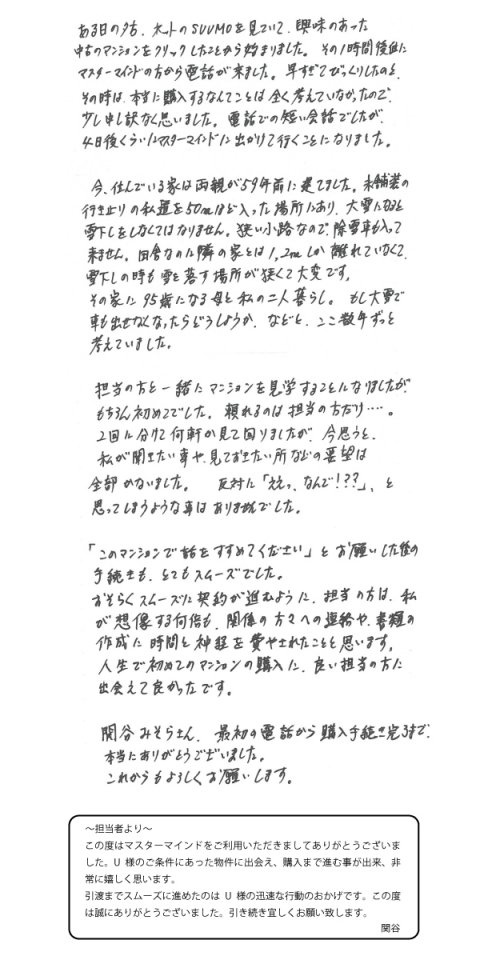 ある日の夕方、ネットのSUUMOを見ていて、興味のあった
中古のマンションをクリックしたことから始まりました。その1時間後位に
マスターマインドの方から電話が来ました。早すぎてびっくりしたのと、
その時は、本当に購入するなんてことは全く考えていなかったので、
少し申し訳なく思いました。電話での短い会話でしたが、
4日後くらいにマスターマインドに出かけて行くことになりました。
今、住んでいる家は両親が59年前に建てました。未舗装の
行き止りの私道を50mほど入った場所にあり、大雪になると
雪下しをしなくてはなりません。狭い小路なので、除雪車も入って
来ません。田舎なのに隣の家とは1,2mしか離れていなくて、
雪下しの時も雪を落す場所が狭くて大変です。
その家に95歳になる母と私の二人暮らし。もし大雪で
車も出せなくなったらどうしようか、などと、ここ数年ずっと
考えていました。
担当の方と一緒にマンションを見学することになりましたが、
もちろん初めてでした。頼れるのは担当の方だけ‥‥。
2回に分けて何軒か見て回りましたが、今思うと、
私が聞きたい事や、見ておきたい所などの要望は
全部かないました。 反対に「ええっ、なんで!??」、と
思ってしまうような事はありませんでした。
「このマンションで話をすすめてください」とお願いした後の
手続きも、とてもスムーズでした。
おそらくスムーズに契約が進むように、担当の方は、私
が想像する何倍も、関係の方々への連絡や、書類の
作成に時間と神経を費やされたことと思います。
人生で初めてのマンションの購入に、良い担当の方に
出会えて良かったです。
関谷みそらさん、最初の電話から購入手続き完了まで、
本当にありがとうございました。
これからもよろしくお願いします。
～担当者より～
この度はマスターマインドをご利用いただきましてありがとうございま
した。U 様のご条件にあった物件に出会え、購入まで進む事が出来、非
常に嬉しく思います。
引渡までスムーズに進めたのは U 様の迅速な行動のおかげです。この度
は誠にありがとうございました。引き続き宜しくお願い致します。
関谷